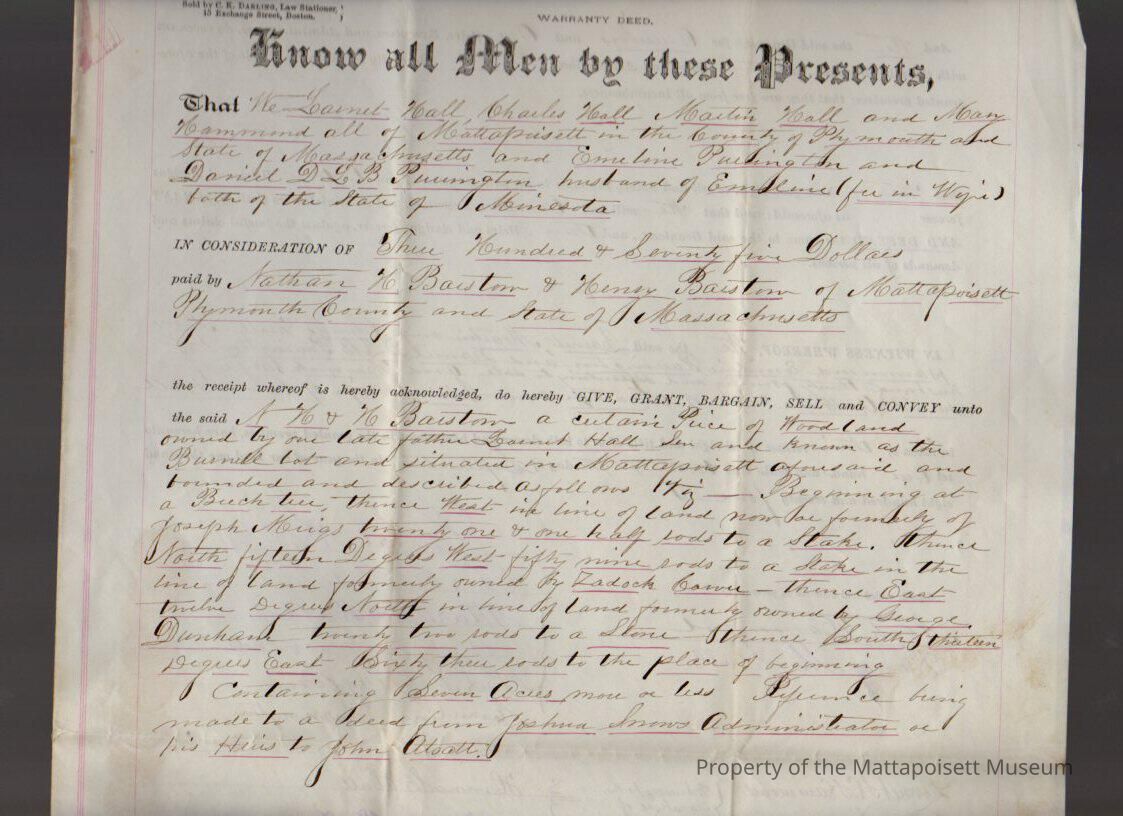 Sold by C. K. DARLING, Law Stationer,
15 Exchange Street, Boston.
WARRANTY DEED.
Know all Men by these Presents,
That We Hall, Charles Hall Martin Hall and Mary
Hammond all of Mattapoisett in the County of Plymouth and
State of Massachusetts and Emeline Purington and
Daniel D L B Purrington husband of Emeline (fee in Wife)
both of the State of Minesota
IN CONSIDERATION OF Three Hundred & Seventy five Dollars
paid by Nathan H Barstow & Henry Barstow of Mattapoisett
Plymouth County and State of Massachusetts
the receipt whereof is hereby acknowledged, do hereby GIVE, GRANT, BARGAIN, SELL and CONVEY unto
the said N H & H Barstow a certain Piece of Woodland
owned by our late father Hall Sen and known as the
Burnell lot and situated in Mattapoisett aforesaid and
bounded and described as follows Viz — Beginning at
a Beech tree, thence West in line of land now or formerly of
Joseph Meigs twenty one & one half rods to a Stake. thence
North fifteen Degrees West fifty nine rods to a Stake in the
line of land formerly owned by Zadock – thence East
twelve Degrees North in line of land formerly owned by George
Dunham twenty two rods to a Stone thence South thirteen
Degrees East Sixty three rods to the place of beginning
Containing Seven Acres more or less Reference being
made to a deed from Joshua Snows Administrator or
his Heirs to John Atsatt.
Property of the Mattapoisett Museum